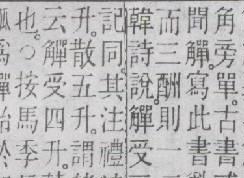 角旁單。古書
聞觶。寫此書
而三酬則一
韓詩說。觶受
記同。其注禮
升。散五升。謂
云觶受四升。
也。○按馬季